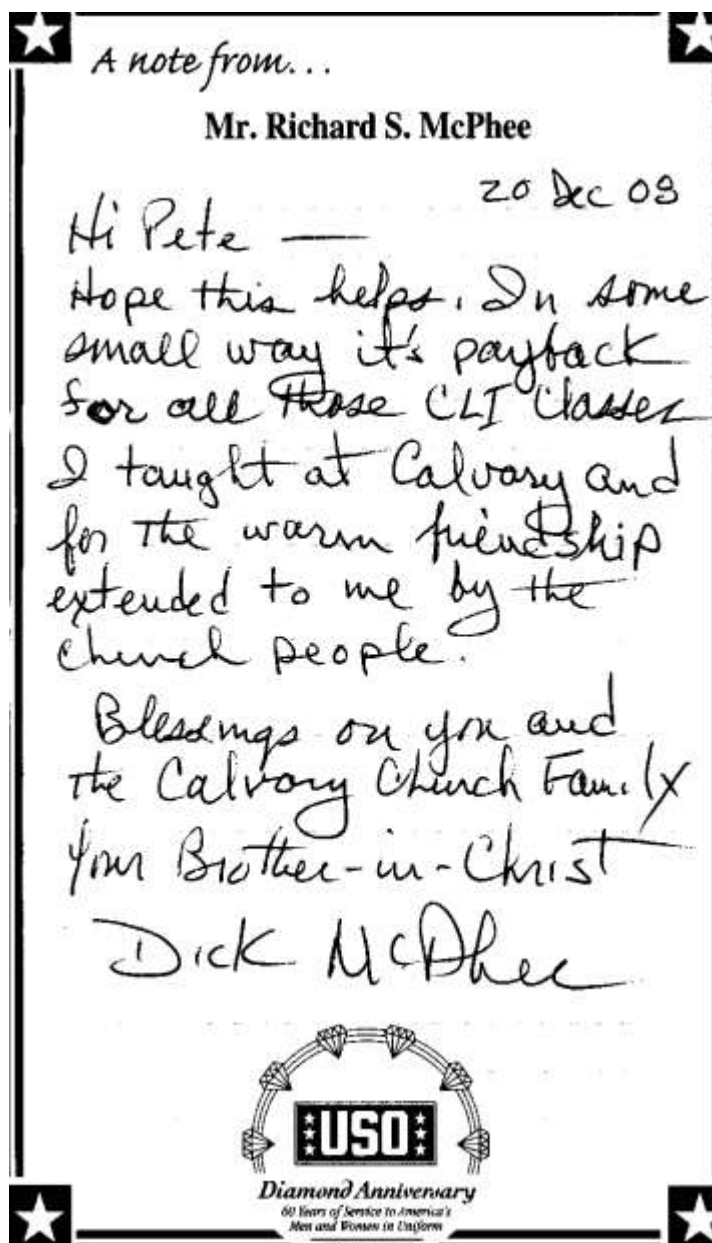 A note from...
Mr. Richard S. McPhee
20 Dec 08
Hi Pete —
Hope this helps. In some
small way it's payback
for all those CLI Classes
I taught at Calvary and
for the warm friendship
extended to me by the
church people.
Blessings on you and
the Calvary Church Family
Your Brother-in-Christ
Dick McPhee
USO
Diamond Anniversary
60 Years of Service to America's
Men and Women in Uniform